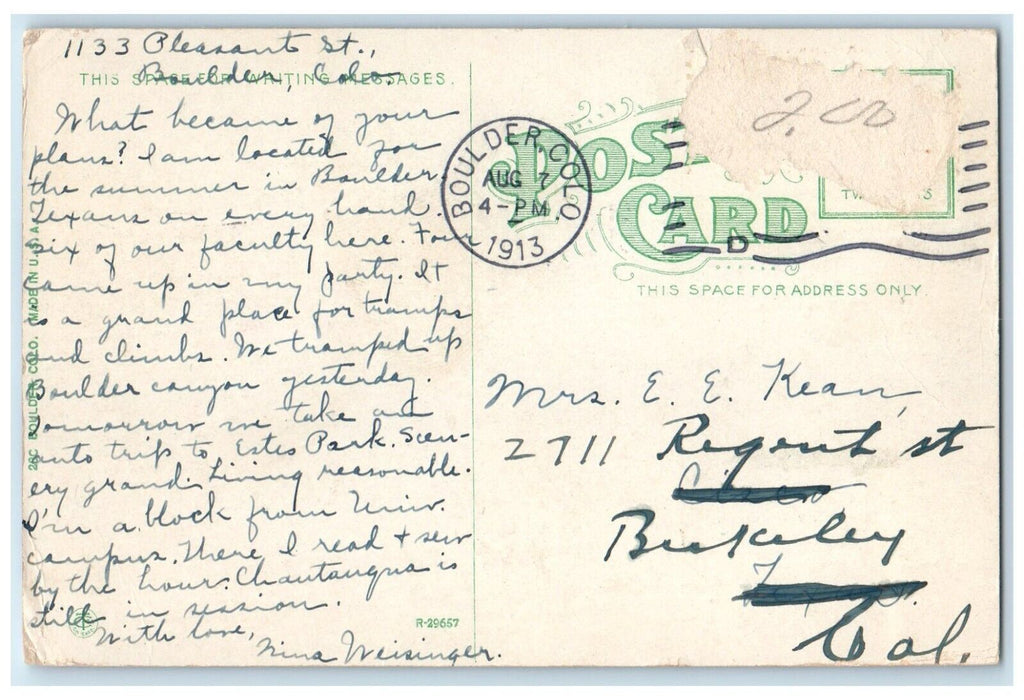 1133 Pleasant St.,
Boulder, Colo.
THIS SPACE FOR WRITING MESSAGES.
What became of your
plans? I am located for
the summer in Boulder.
Texans on every hand.
Six of our faculty here. Four
came up in my party. It
is a grand place for tramps
and climbs. We tramped up
Boulder canyon yesterday.
Tomorrow we take an
auto trip to Estes Park. Scen-
ery grand. Living reasonable.
I'm a block from Univ.
campus. There I read + sew
by the hour. Chautauqua is
still in session.
With love,
Nina Weisinger.
BOULDER, COLO. MADE IN U.S.A.
R-29657
BOULDER, COLO.
AUG 7
4-PM
1913
D
2.00
POS
CARD
TW S
THIS SPACE FOR ADDRESS ONLY.
Mrs. E. E. Kean,
2711 Regent st
Cisco
Berkeley
Texas.
Cal.